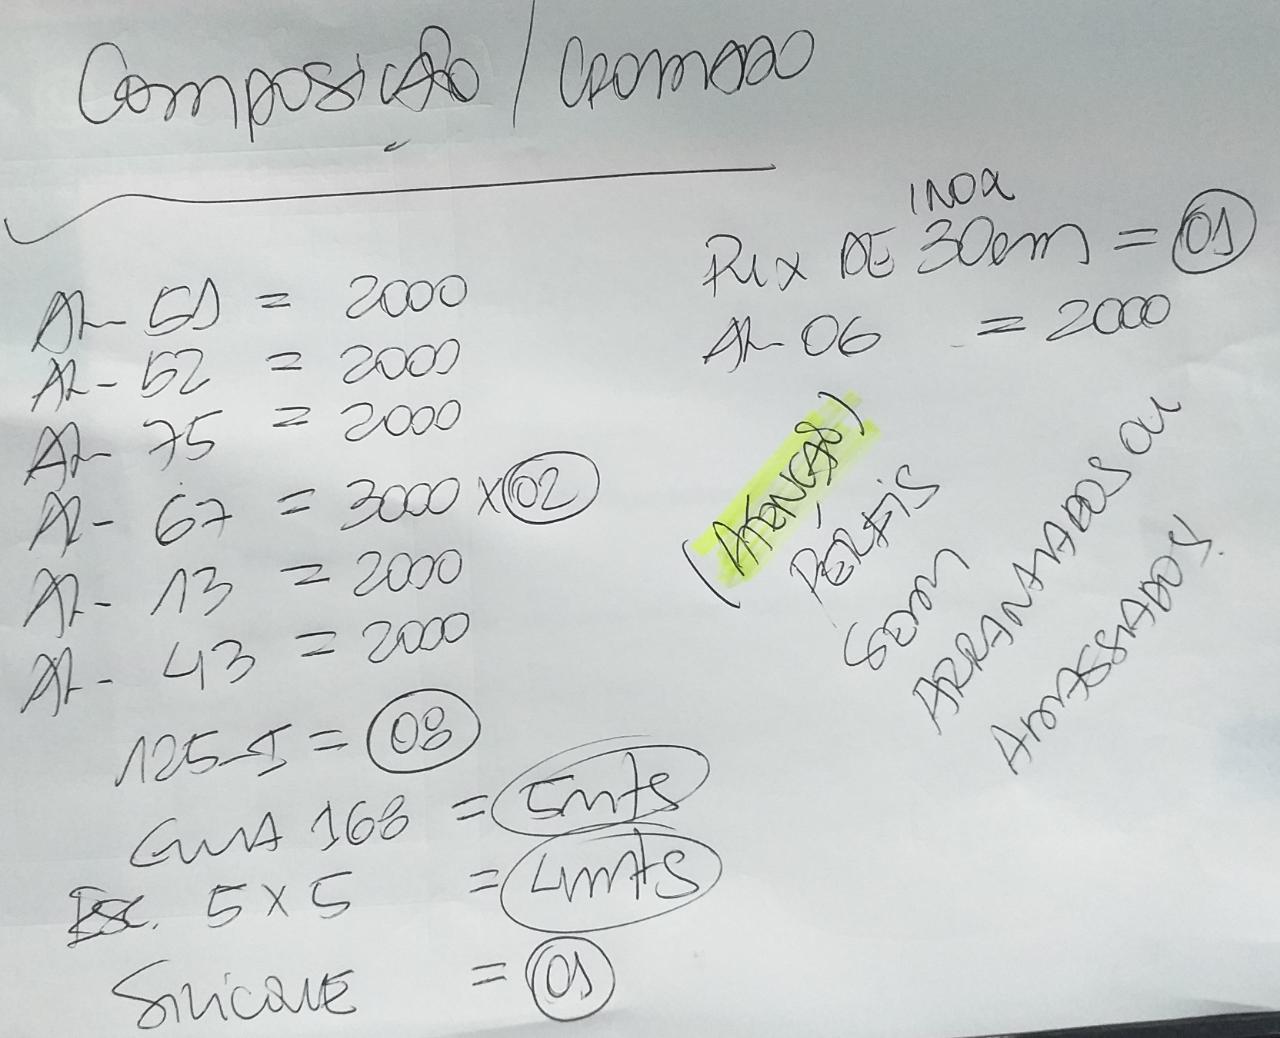 Composição / Cromado
AL- 51 = 2000
AL- 52 = 2000
AL- 75 = 2000
AL- 67 = 3000 x 02
AL- 13 = 2000
AL- 43 = 2000
125-I = 08
GUIA 168 = 5mts
Esc. 5x5 = 4mts
SILICONE = 01
INOX
Pux DE 30cm = 01
AL- 06 = 2000
(ATENÇÃO)
PERFIS
SEM
ARRANHADOS OU
AMASSADOS.